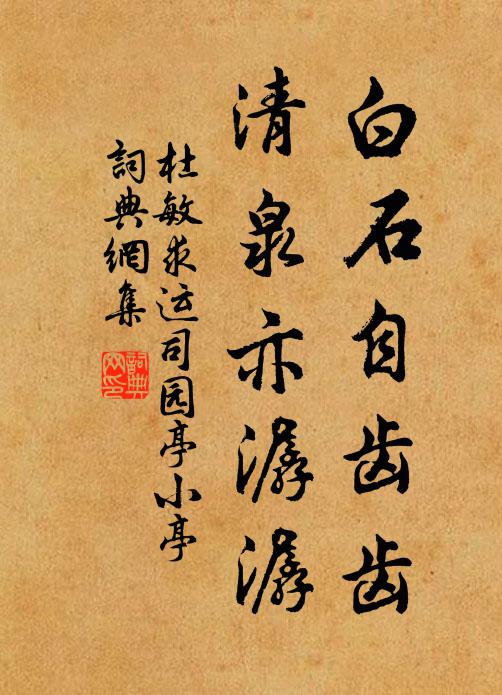 白石自齿齿
清泉亦潺潺
杜敏求运司园亭小亭
詞典網集
詞典网印